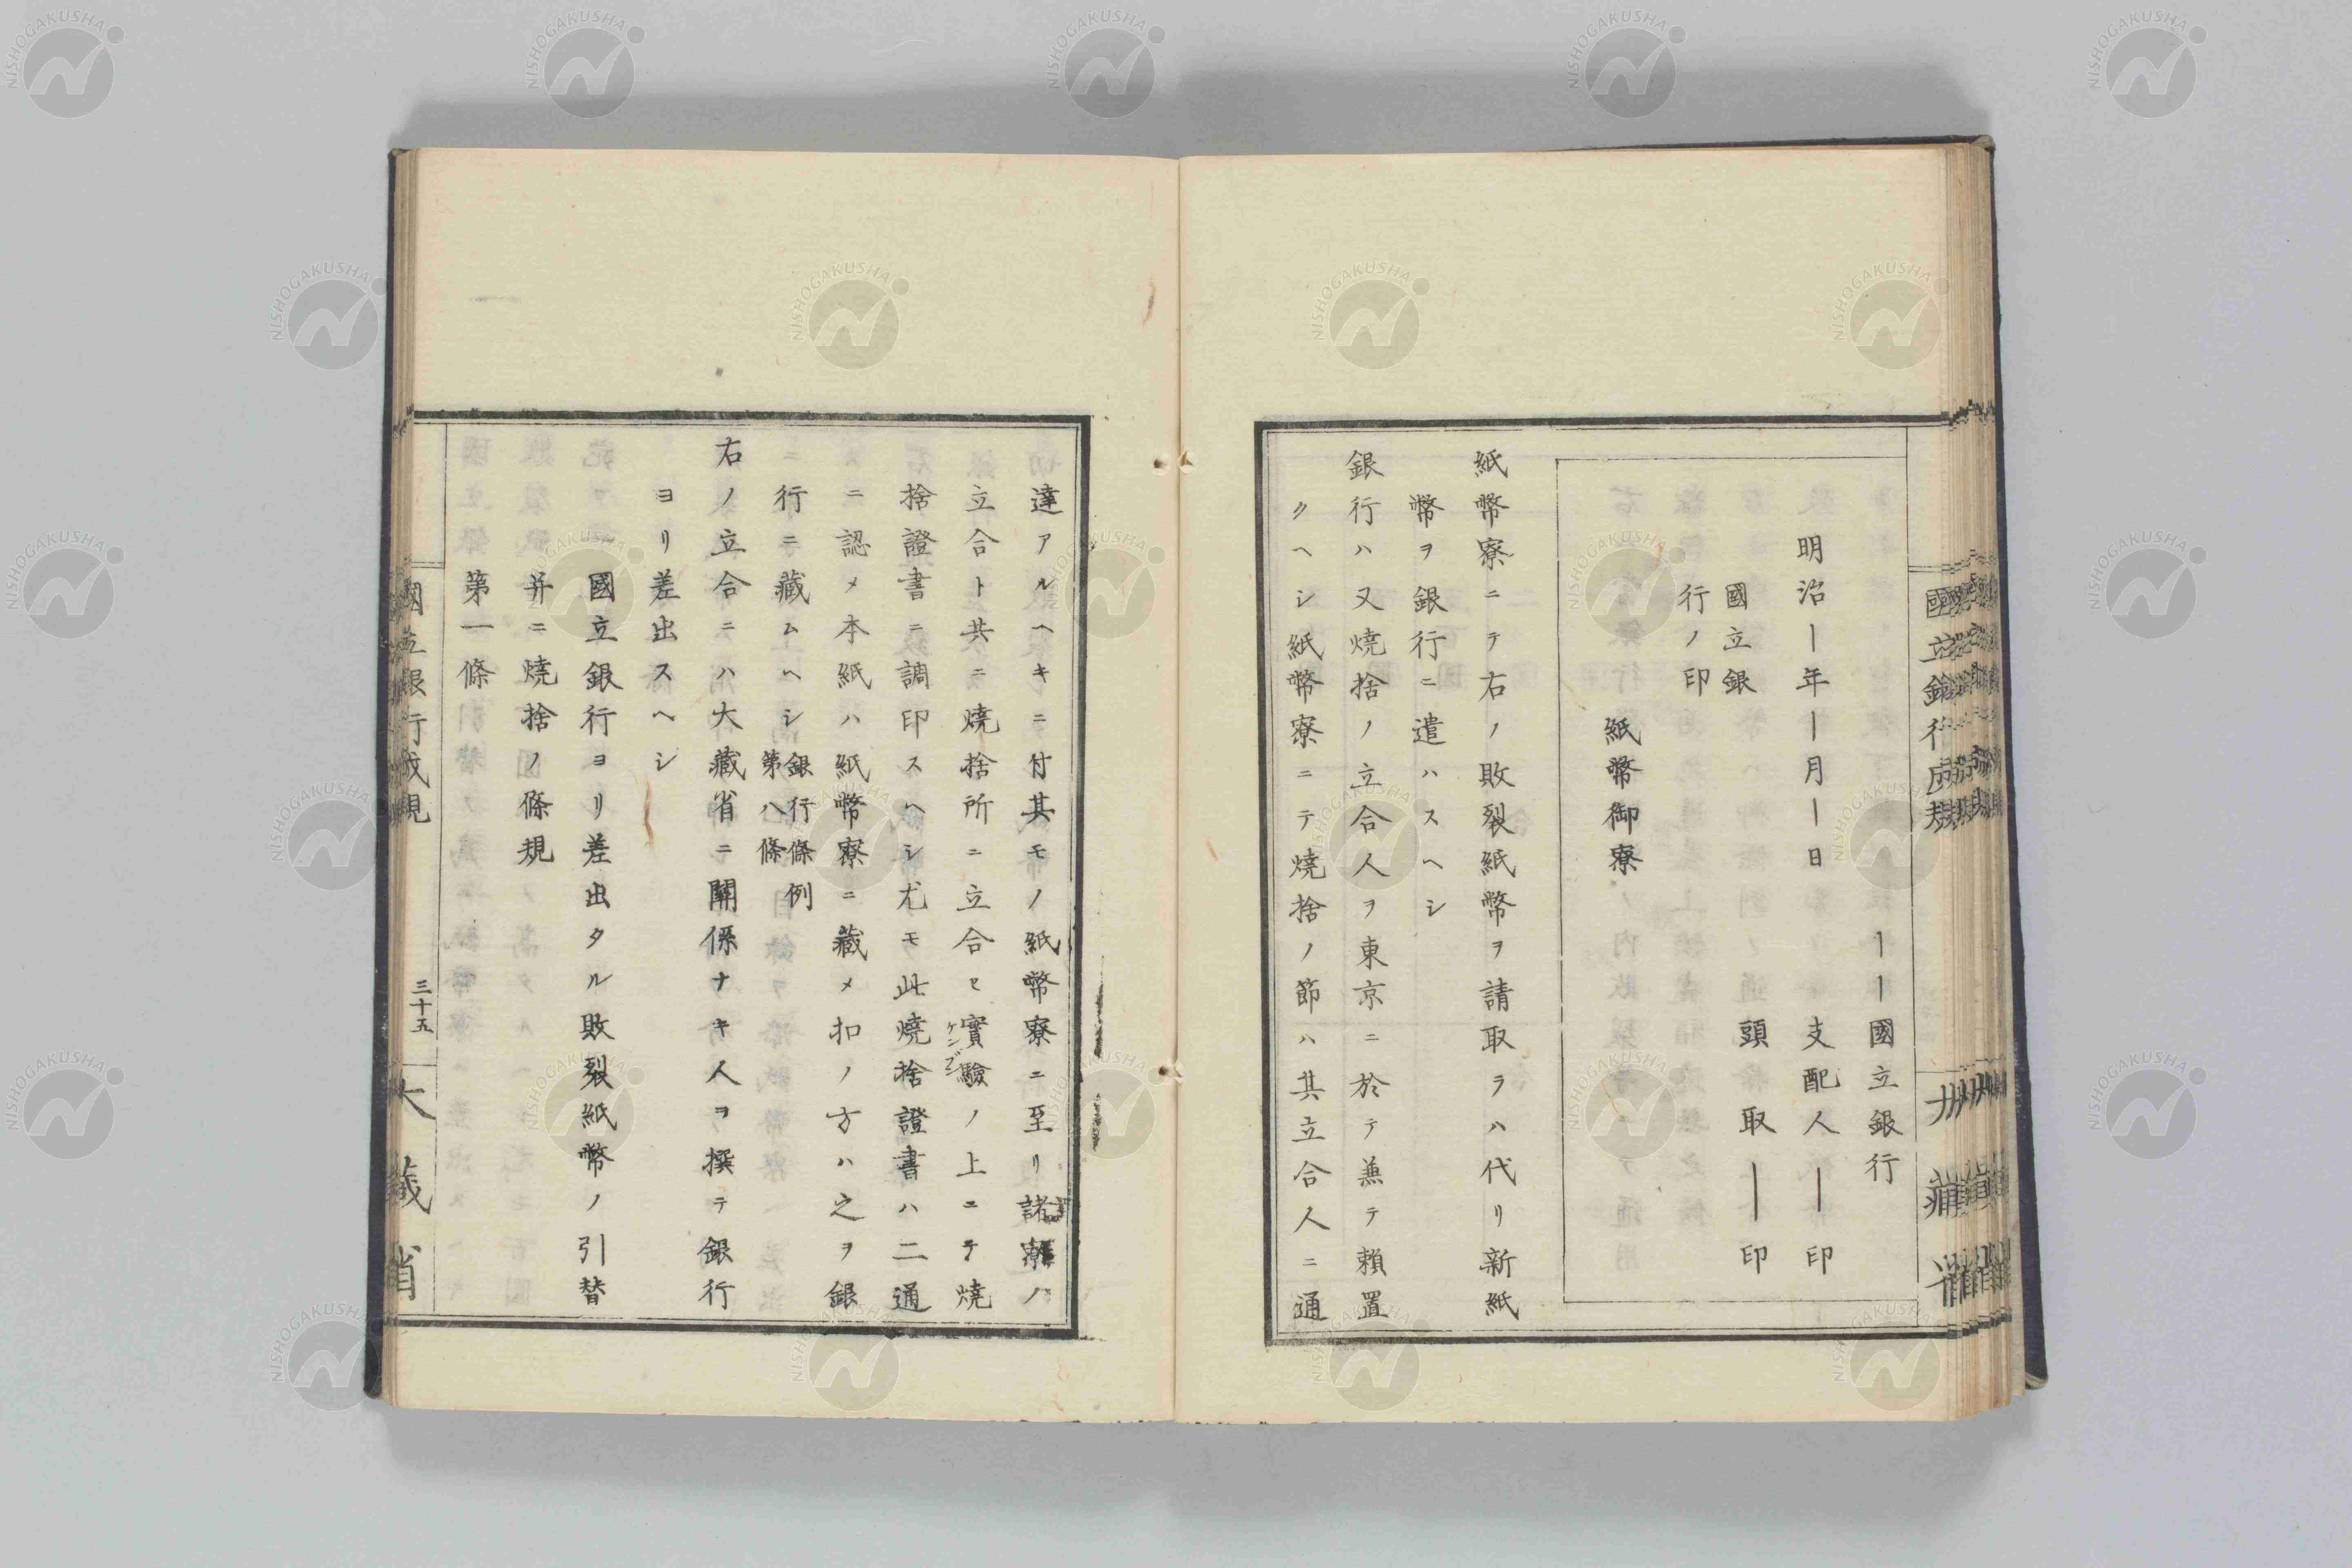 ――國立銀行
明治―年―月―日　支配人―印
國立銀
行ノ印　頭取―印
紙幣御寮
紙幣寮ニテ右ノ敗裂紙幣ヲ請取ラハ代リ新紙
幣ヲ銀行ニ遣ハスヘシ
銀行ハ又燒捨ノ立合人ヲ東京ニ於テ兼テ賴置
クヘシ紙幣寮ニテ燒捨ノ節ハ其立合人ニ通
達アルヘキニ付其モノ紙幣寮ニ至リ諸寮ノ
立合ト共ニ燒捨所ニ立合ヒ實驗ケンブンノ上ニテ燒
捨證書ニ調印スヘシ尤モ此燒捨證書ハ二通
ニ認メ本紙ハ紙幣寮ニ藏メ扣ノ方ハ之ヲ銀
行ニ藏ムヘシ銀行條例
第八條
右ノ立合ニハ大藏省ニ關係ナキ人ヲ撰テ銀行
ヨリ差出スヘシ
國立銀行ヨリ差出タル敗裂紙幣ノ引替
并ニ燒捨ノ條規
第一條
國立銀行成規
三十五
大藏省
NISHOGAKUSHA